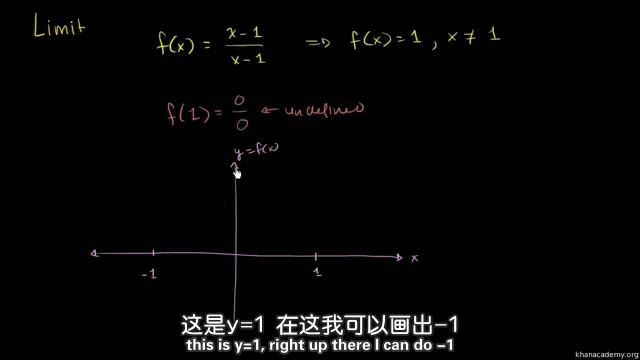 Limit
f(x) = x-1 / x-1 ⇒ f(x) = 1 , x ≠ 1
f(1) = 0 / 0 ← undefined
y = f(x)
x
-1 1
这是y=1 在这我可以画出-1
this is y=1, right up there I can do -1
khanacademy.org